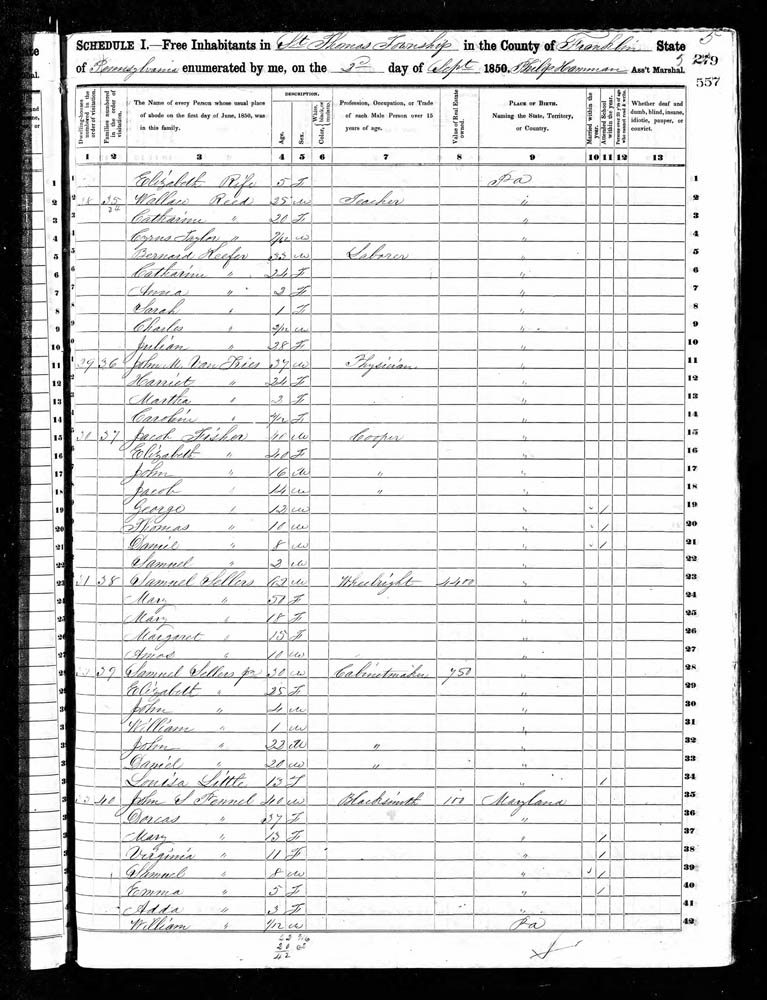 5
SCHEDULE I.—Free Inhabitants in St Thomas Township in the County of Franklin State 5 279
of Pennsylvania enumerated by me, on the 2d day of Sept 1850. Philip Hamman Ass't Marshal. 557
Dwelling-houses numbered in the order of visitation. Families numbered in the order of visitation. The Name of every Person whose usual place of abode on the first day of June, 1850, was in this family. DESCRIPTION. Age. Sex. Color, White, black, or mulatto. Profession, Occupation, or Trade of each Male Person over 15 years of age. Value of Real Estate owned. PLACE OF BIRTH. Naming the State, Territory, or Country. Married within the year. Attended School within the year. Persons over 20 y'rs of age who cannot read & write. Whether deaf and dumb, blind, insane, idiotic, pauper, or convict.
1 2 3 4 5 6 7 8 9 10 11 12 13
1 Elizabeth Rife 5 F Pa 1
2 28 35 Wallace Reed 25 m Teacher " 2
3 Catharine " 20 F " 3
4 Cyrus Taylor " 7/12 m " 4
5 Bernard Keefer 33 m Laborer " 5
6 Catharine " 24 F " 6
7 Anna " 2 F " 7
8 Sarah " 1 F " 8
9 Charles " 3/12 m " 9
10 Julian " 28 F " 10
11 29 36 John M. Van Tries 37 m Physician " 11
12 Harriet " 24 F " 12
13 Martha " 3 F " 13
14 Carolin " 4/12 F " 14
15 30 37 Jacob Fisher 40 m Cooper " 15
16 Elizabeth " 40 F " 16
17 John " 16 m " " 17
18 Jacob " 14 m " " 18
19 George " 12 m " 1 19
20 Thomas " 10 m " 1 20
21 Daniel " 8 m " 1 21
22 Samuel " 2 m " 22
23 31 38 Samuel Sellers 62 m Wheelright 4400 " 23
24 Mary " 51 F " 24
25 Mary " 18 F " 25
26 Margaret " 15 F " 26
27 Amos " 10 m " 27
28 32 39 Samuel Sellers jr 30 m Cabinetmaker 750 " 28
29 Elizabeth " 25 F " 29
30 John " 4 m " 30
31 William " 1 m " 31
32 John " 22 m " " 32
33 Daniel " 20 m " " 33
34 Louisa Little 13 F " 1 34
35 33 40 John S Fennel 40 m Blacksmith 100 Maryland 35
36 Dorcas " 37 F " 36
37 Mary " 13 F " 1 37
38 Virginia " 11 F " 1 38
39 Samuel " 8 m " 1 39
40 Emma " 5 F " 1 40
41 Adda " 3 F " 41
42 William " 1/12 m Pa 42
22
20
42